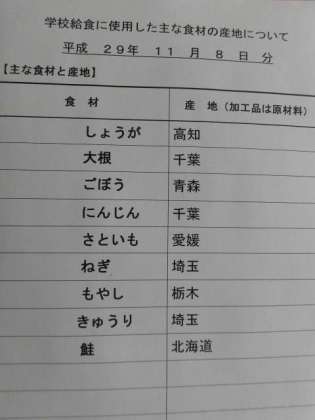 学校給食に使用した主な食材の産地について
平成 29年 11 月 8 日 分
【主な食材と産地】
食 材 産 地（加工品は原材料）
しょうが 高知
大根 千葉
ごぼう 青森
にんじん 千葉
さといも 愛媛
ねぎ 埼玉
もやし 栃木
きゅうり 埼玉
鮭 北海道